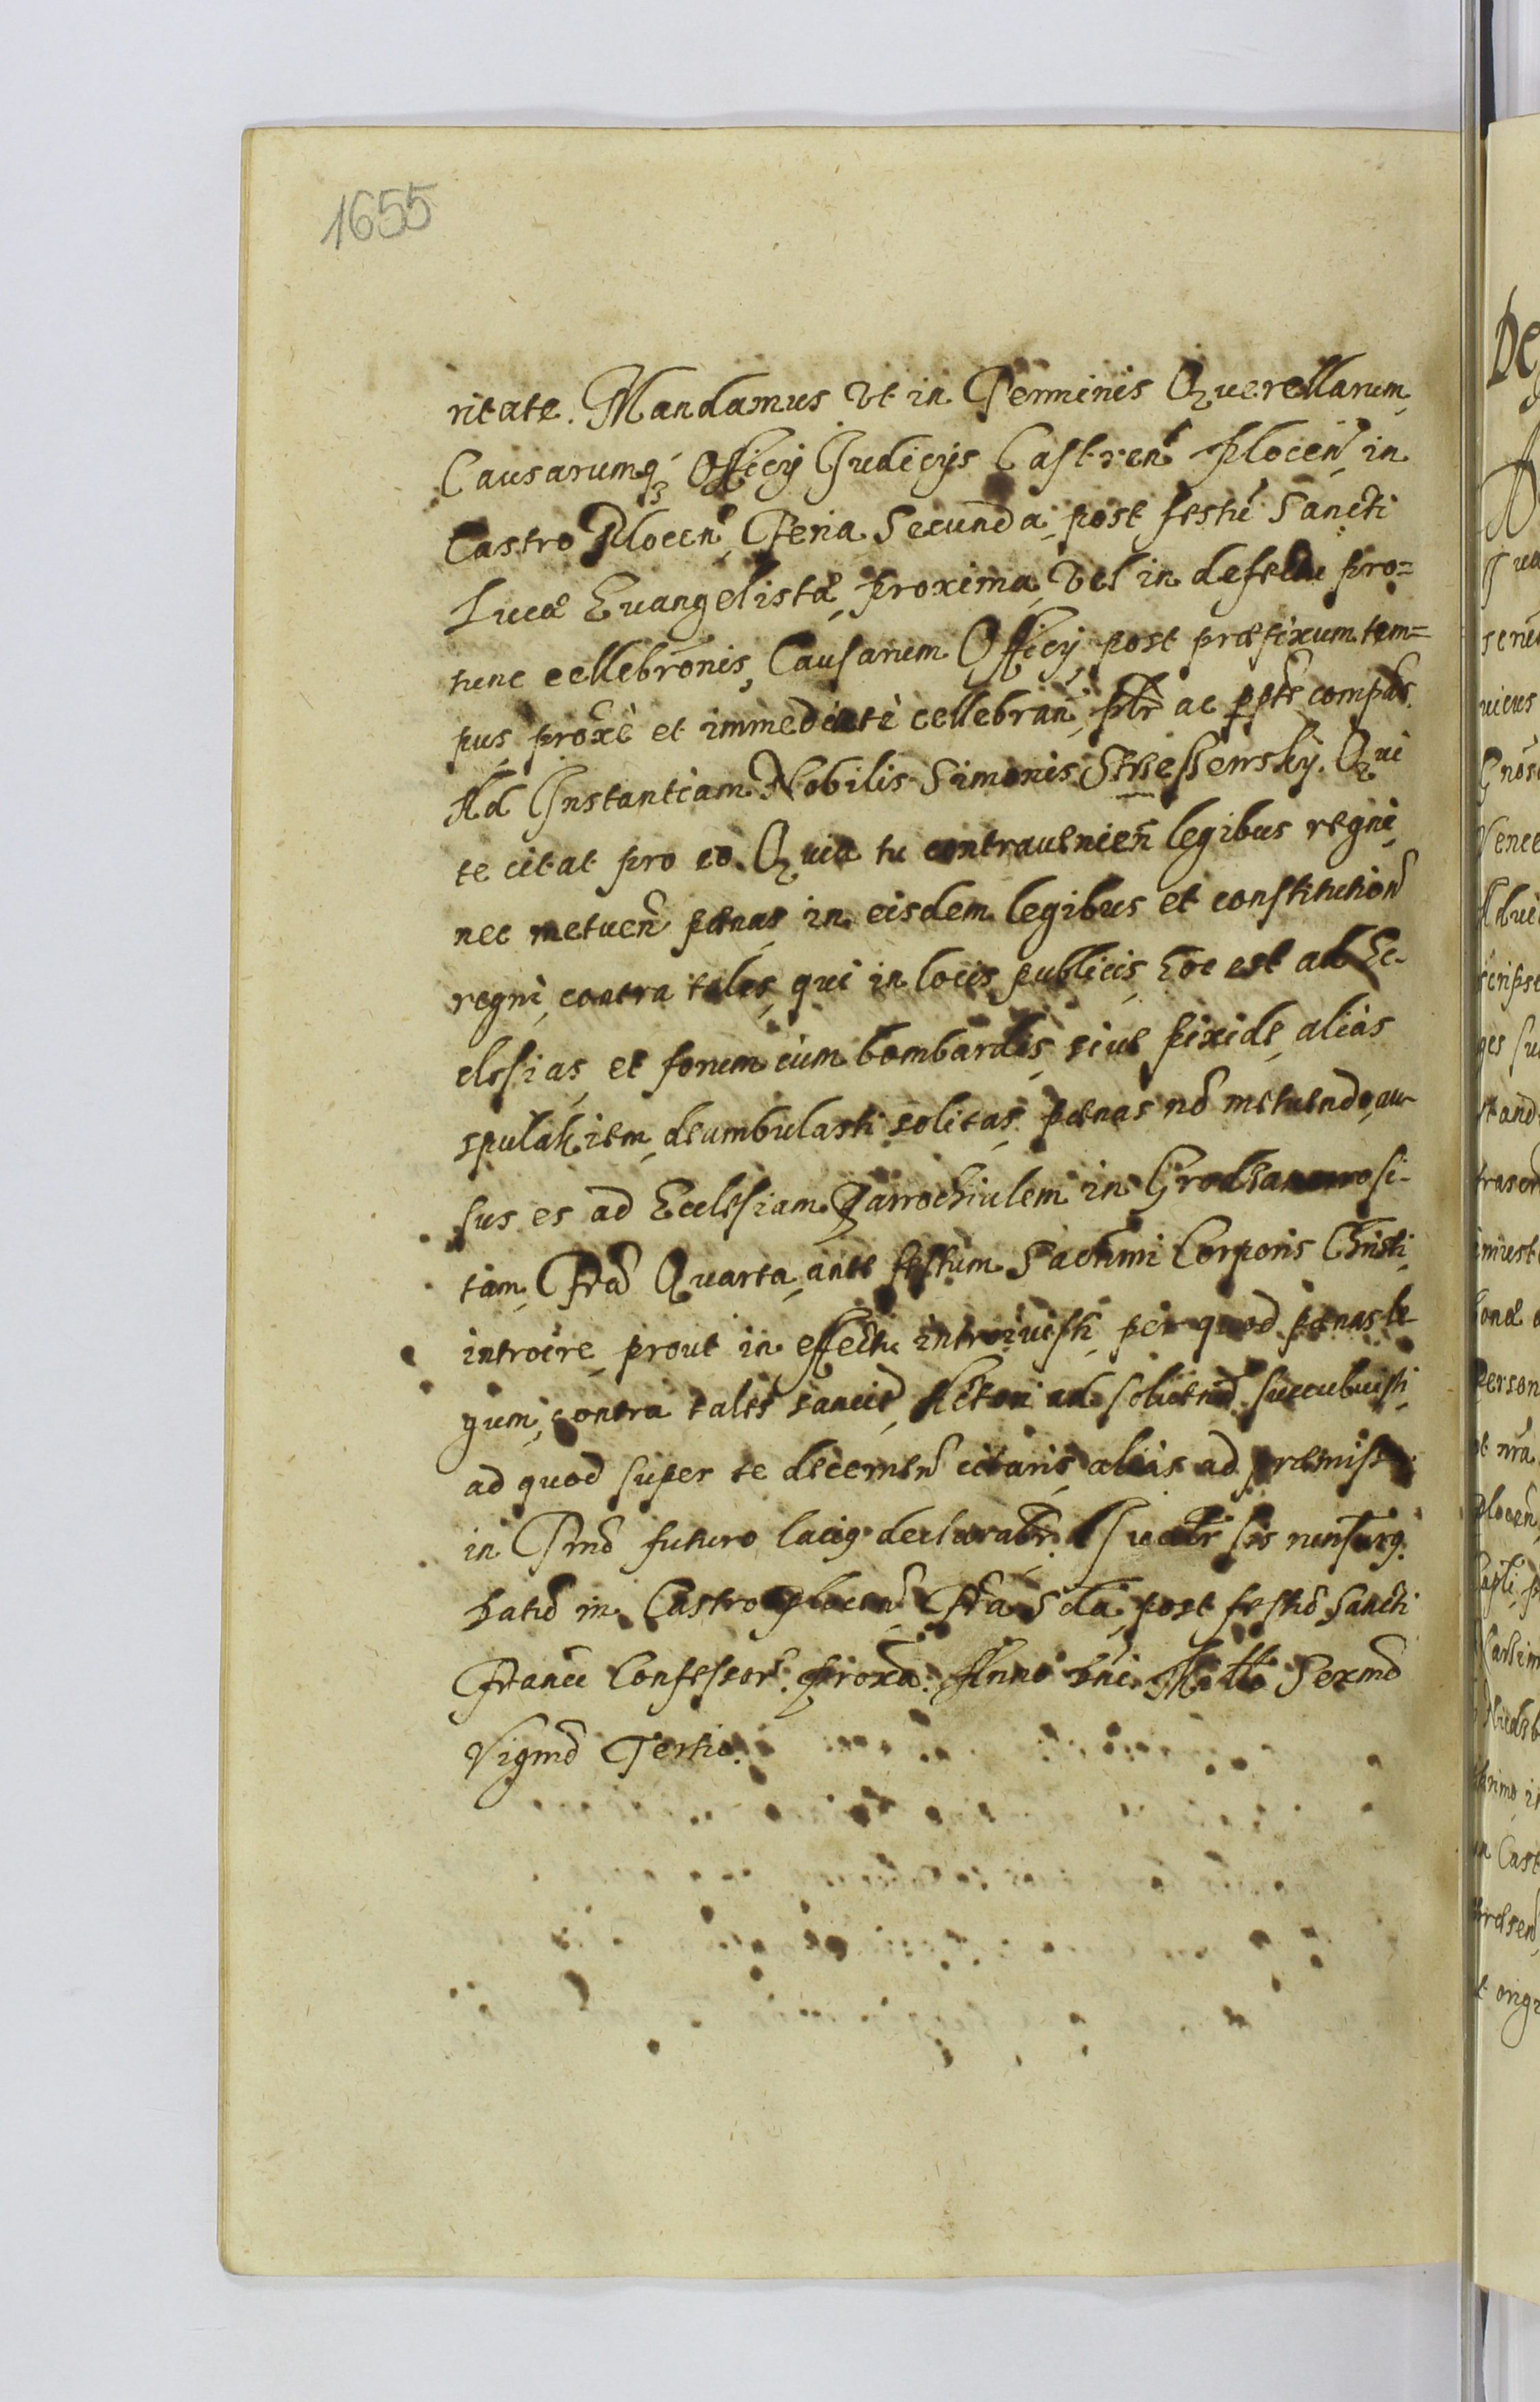 1655
ritate. Mandamus Vt in Terminis Querellarum,
Causarumq; Officy Judicys Castren̄ Plocen̄, in
Castro Plocen̄, Feria Secunda, post festū Sancti
Lucæ Euangelistæ, proxima, Vel in defectu pro=
tunc cellebrōnis, Causarum Officy, post præfixum tem=
pus, proxē et immediatè cellebran̄, pltr ac pptr compās.
Ad Instantiam Nobilis Simonis Qui
te citat pro eo. Quia tu contraueniēn̄ legibus regni,
nec metuen̄ pænas in eisdem legibus et constitution̄
regni, contra tales, qui in locis publicis, hoc est ad Ec-
clesias, et forum cum bombardis, siue pixide, aliàs
deambulasti solitas, pænas nō metuendo, au-
sus es ad Ecclesiam Parrochialem in si-
tam, Frā Quarta, ante festum Sactmi Corporis Christi,
introire, prout in effectu introiuisti, per quod pænas le-
gum, contra tales sancit, Actori ad soluend̄ succubuisti,
ad quod super te decernen̄ citaris, aliàs ad præmissa
in Tmō futuro latig declarabr̄. Sis
Datū in Castro Plocen̄ Frā Sdā, post festū Sancti
Franci Confessor̄. Proxā. Anno Dni Millō Sexmō
Vigmō Tertio.